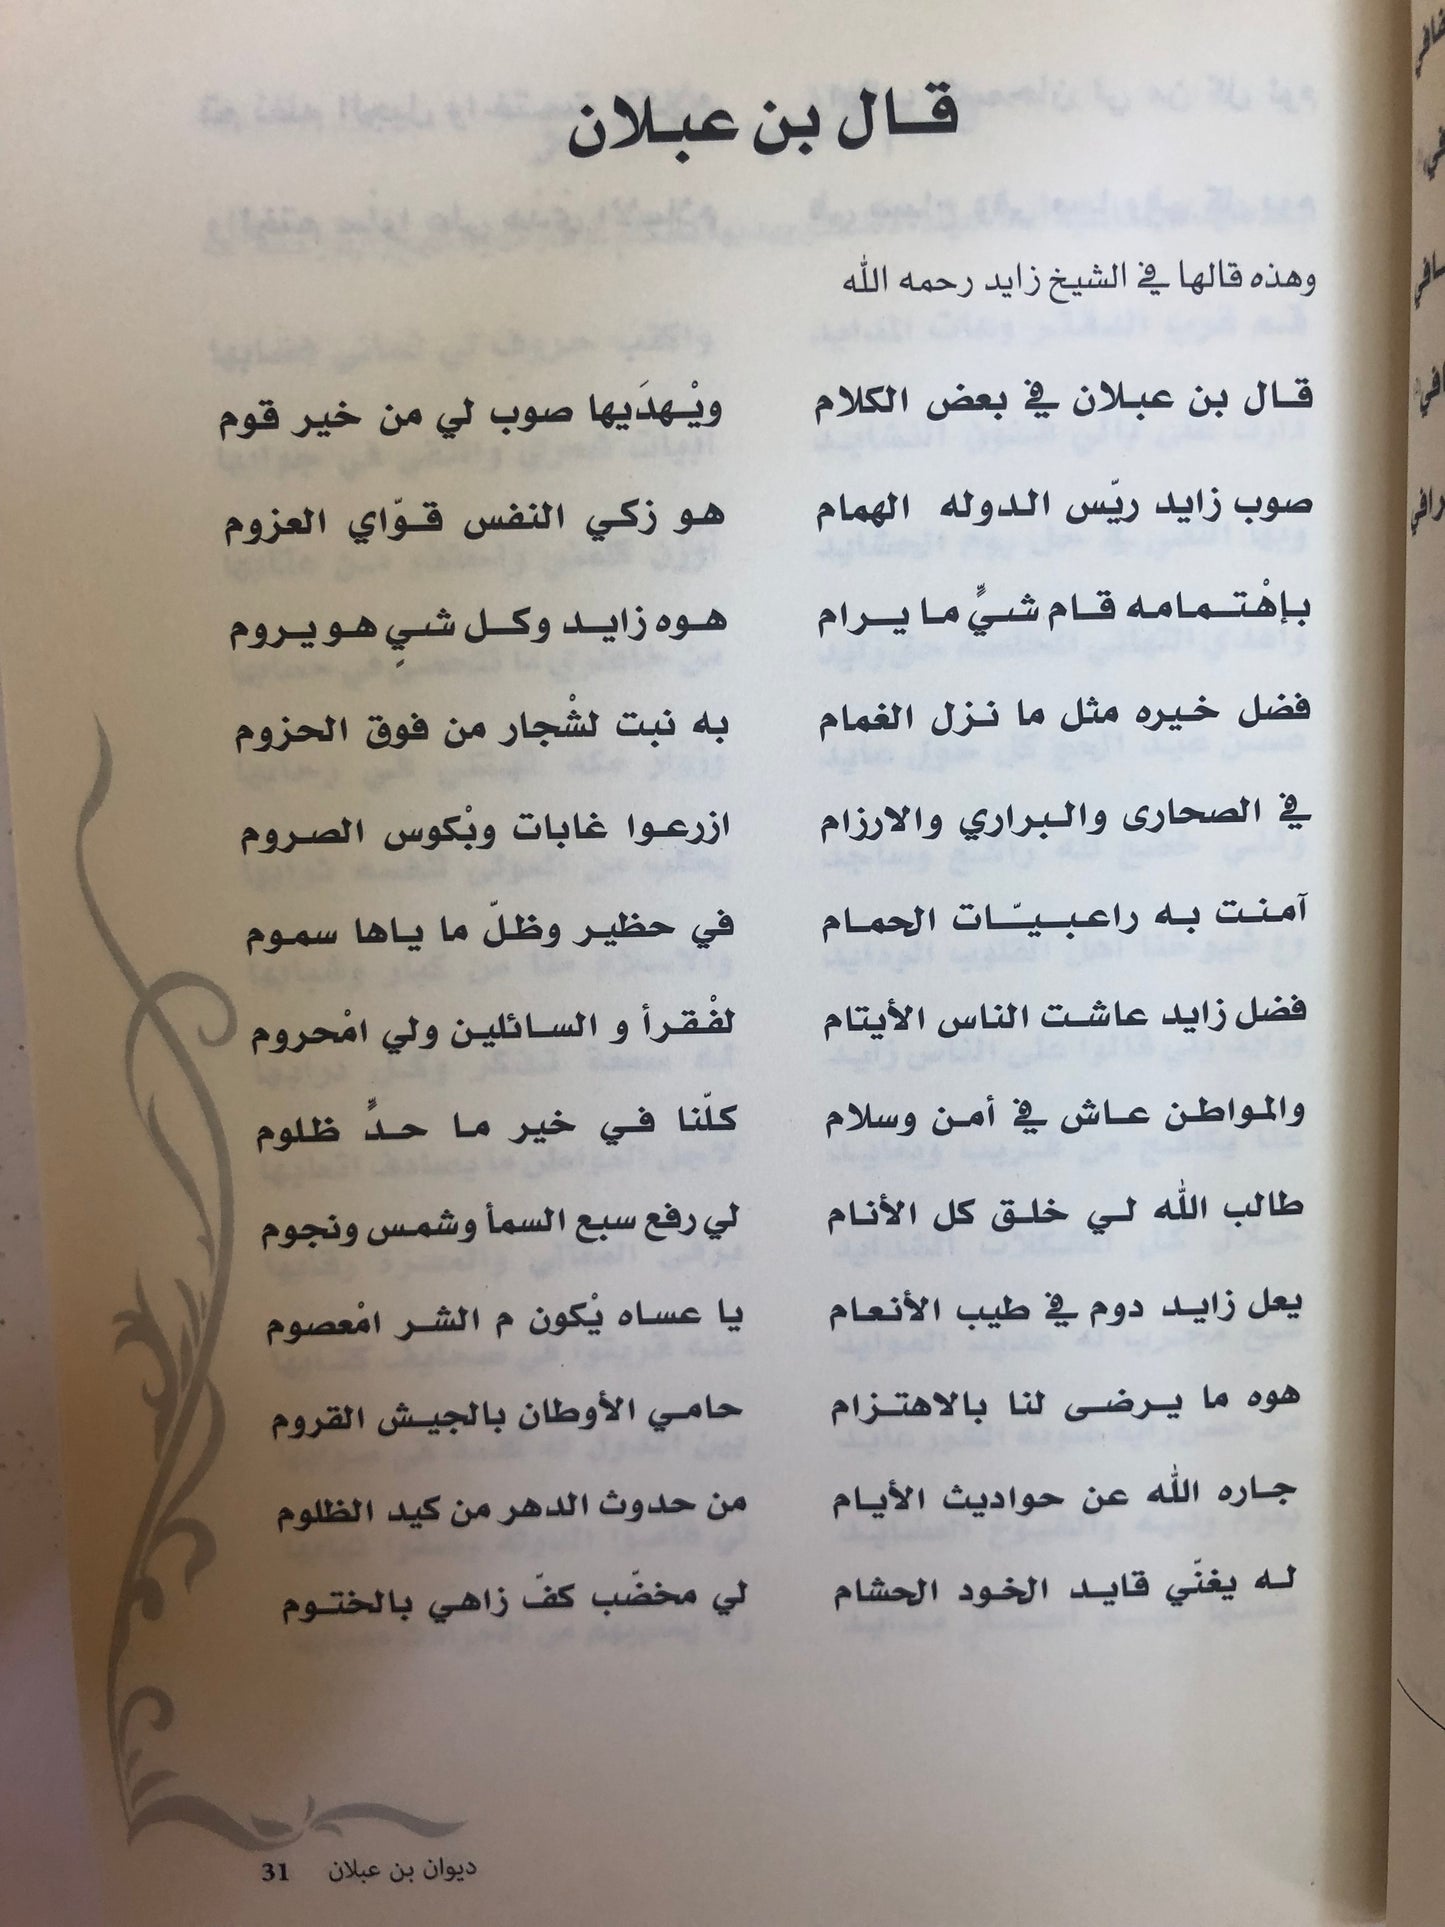 قال بن عبلان
وهذه قالها في الشيخ زايد رحمه الله
قال بن عبلان في بعض الكلام ويْهدَيها صوب لي من خير قوم
صوب زايد ريّس الدوله الهمام هو زكي النفس قوّاي العزوم
بإهْتمامه قام شيٍّ ما يرام هوه زايد وكل شيٍ هو يروم
فضل خيره مثل ما نزل الغمام به نبت لشْجار من فوق الحزوم
في الصحارى والبراري والارزام ازرعوا غابات وبْكوس الصروم
آمنت به راعبيّات الحمام في حظير وظلّ ما ياها سموم
فضل زايد عاشت الناس الأيتام لفْقرأ و السائلين ولي امْحروم
والمواطن عاش في أمن وسلام كلّنا في خير ما حدٍّ ظلوم
طالب الله لي خلق كل الأنام لي رفع سبع السمأ وشمس ونجوم
يعل زايد دوم في طيب الأنعام يا عساه يْكون م الشر امْعصوم
هوه ما يرضى لنا بالاهتزام حامي الأوطان بالجيش القروم
جاره الله عن حواديث الأيام من حدوث الدهر من كيد الظلوم
له يغنّي قايد الخود الحشام لي مخضّب كفّ زاهي بالختوم
ديوان بن عبلان 31